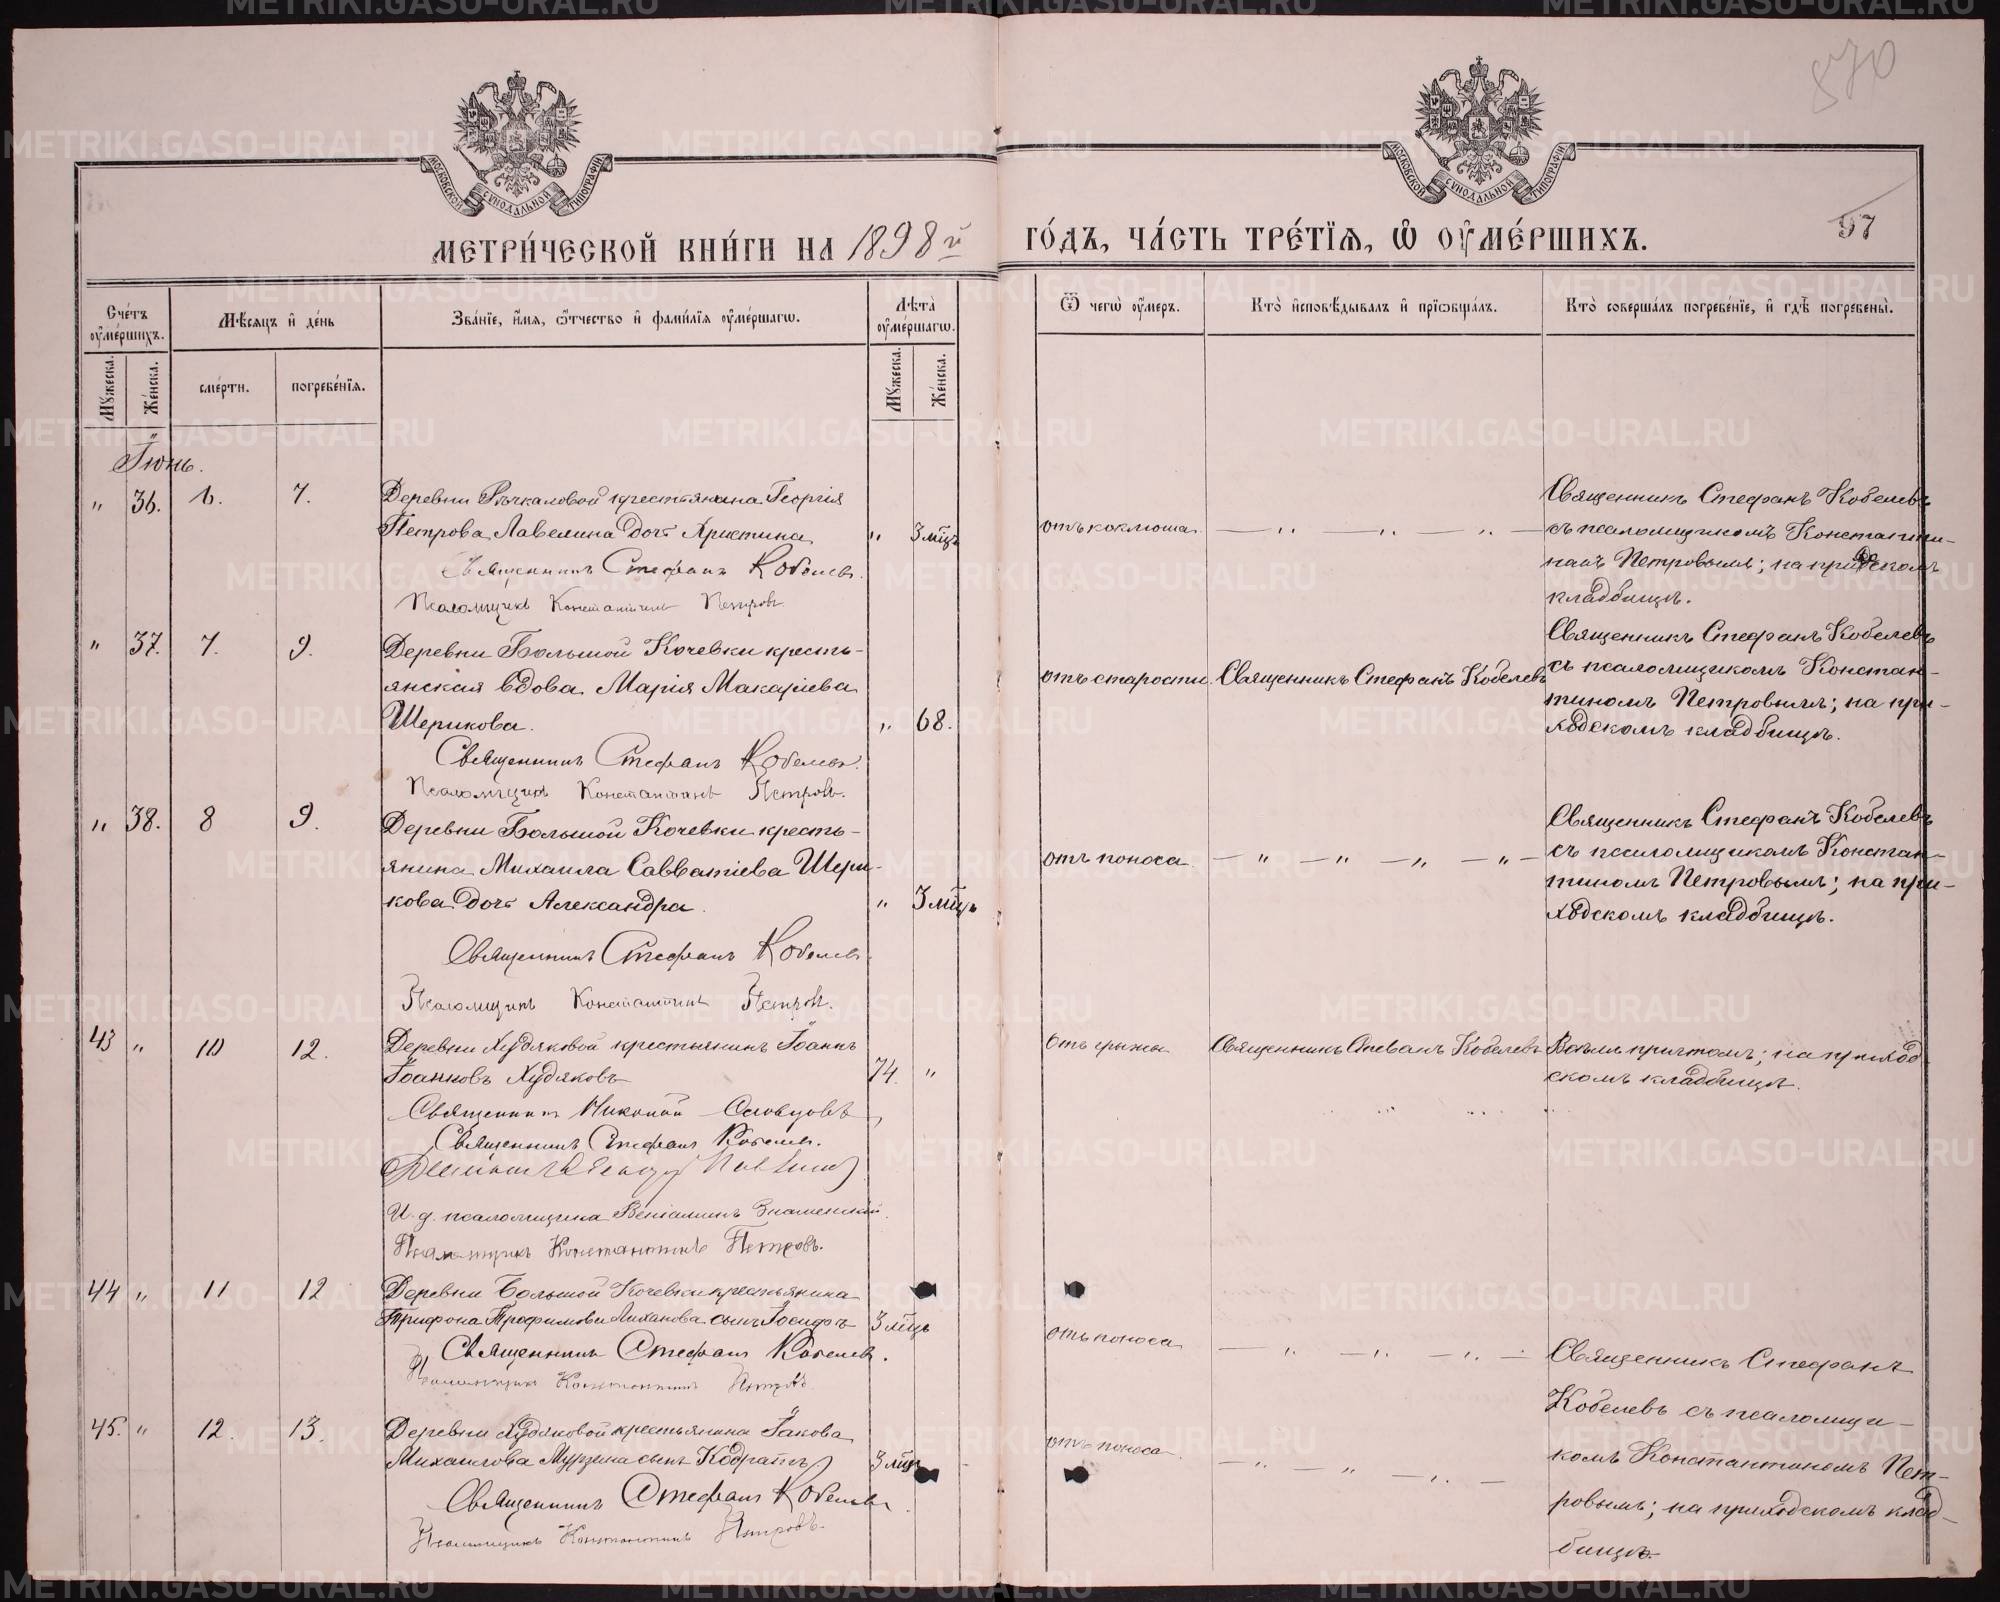 870
МОСКОВСКОЙ СУНОДАЛЬНОЙ ТИПОГРАФІИ
МОСКОВСКОЙ СУНОДАЛЬНОЙ ТИПОГРАФІИ
97
МЕТРИ́ЧЕСКОЙ КНИ́ГИ НА 1898й ГО́ДЪ, ЧА́СТЬ ТРЕ́ТІѦ, Ѽ ОУ҆МЕ́РШИХЪ.
Сче́тъ оу҆ме́ршихъ.
Мꙋ́жеска.
Же́нска.
Мѣ́сяцъ и҆ де́нь
сме́рти.
погребе́нїѧ.
Зва́нїе, и҆́мѧ, ѻ҆́тчество и҆ фами́лїѧ оу҆ме́ршагѡ.
Лѣта̀ оу҆ме́ршагѡ.
Мꙋ́жеска.
Же́нска.
Ѿ чегѡ̀ оу҆́меръ.
Кто̀ и҆сповѣ́дывалъ и҆ прїѡбща́лъ.
Кто̀ соверша́лъ погребе́нїе, и҆ гдѣ̀ погребены̀.
Іюнь.
" 36. 6. 7.
Деревни Рычкаловой крестьянина Георгія
Петрова Лавелина дочь Христина " 3 мцъ
Священникъ Стефанъ Кобелевъ.
Псаломщикъ Константинъ Петровъ
отъ коклюша — " — " — " —
Священникъ Стефанъ Кобелевъ
съ псаломщикомъ Константи-
номъ Петровымъ; на приходскомъ
кладбищѣ.
" 37. 7. 9.
Деревни Большой Кочевки кресть-
янская вдова Марія Макаріева
Шерикова. " 68.
Священникъ Стефанъ Кобелевъ.
Псаломщикъ Константинъ Петровъ.
отъ старости
Священникъ Стефанъ Кобелевъ
Священникъ Стефанъ Кобелевъ
съ псаломщикомъ Констан-
тиномъ Петровымъ; на при-
ходскомъ кладбищѣ.
" 38. 8 9.
Деревни Большой Кочевки кресть-
янина Михаила Савватіева Шери-
кова дочь Александра. " 3 мцъ
Священникъ Стефанъ Кобелевъ.
Псаломщикъ Константинъ Петровъ.
отъ поноса — " — " — " — " —
Священникъ Стефанъ Кобелевъ
съ псаломщикомъ Констан-
тиномъ Петровымъ; на при-
ходскомъ кладбищѣ.
43 " 10 12.
Деревни Худяковой крестьянинъ Іоаннъ
Іоанновъ Худяковъ 74. "
Священникъ Николай Словцовъ
Священникъ Стефанъ Кобелевъ.
И. д. псаломщика Веніаминъ Знаменскій.
Псаломщикъ Константинъ Петровъ.
отъ грыжи
Священникъ Стефанъ Кобелевъ
Всѣмъ причтомъ; на приход
скомъ кладбищѣ.
44 " 11 12
Деревни Большой Кочевки крестьянина
Трифона Трофимова Лиханова сынъ Іосифъ 3 мцъ
Священникъ Стефанъ Кобелевъ.
Псаломщикъ Константинъ Петровъ.
отъ поноса — " — " — " —
45. " 12. 13.
Деревни Худяковой крестьянина Іакова
Михаилова Мурзина сынъ Кодратъ 3 мцъ
Священникъ Стефанъ Кобелевъ.
Псаломщикъ Константинъ Петровъ.
отъ поноса — " — " — " —
Священникъ Стефанъ
Кобелевъ съ псаломщи-
комъ Константиномъ Пет-
ровымъ; на приходскомъ клад-
бищѣ.
METRIKI.GASO-URAL.RU